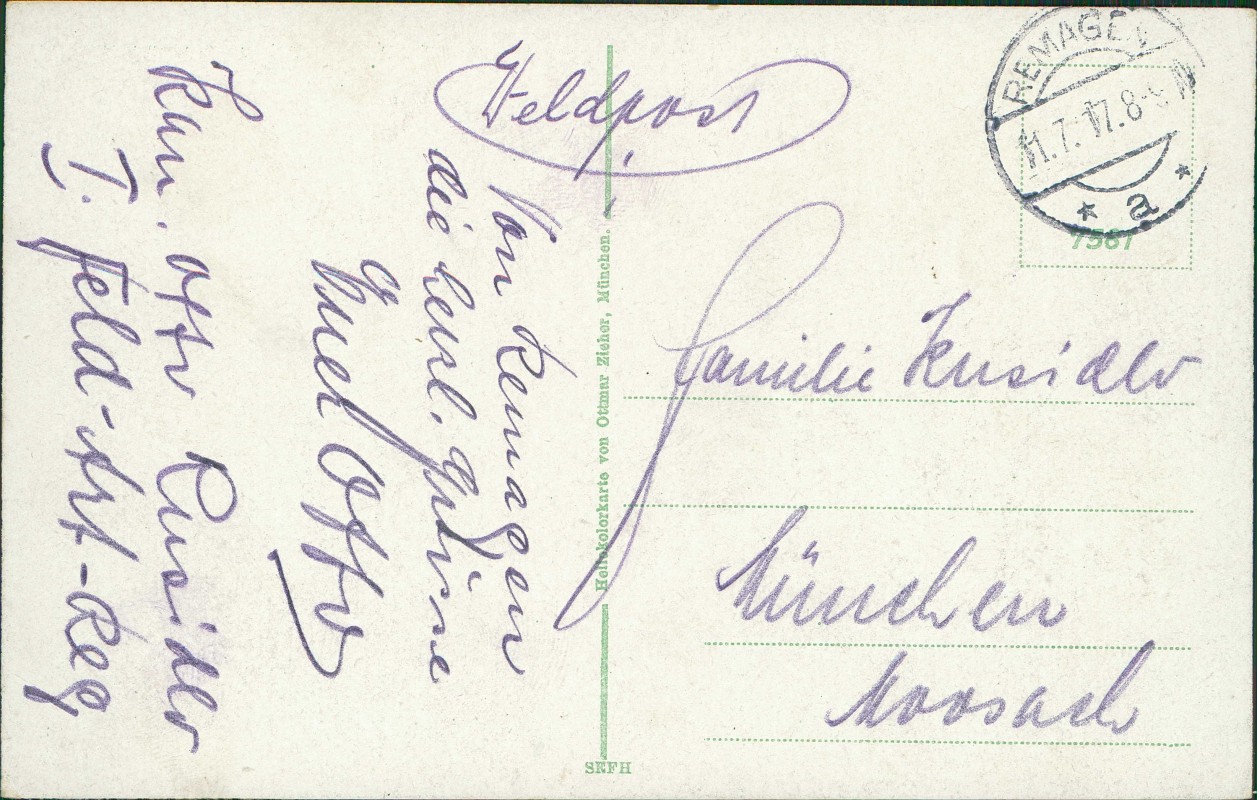 Feldpost
Von Remagen
die herzl. Grüsse
Euer Otto
Kan. Otto Kusidlo
I. Feld-Art-Reg
Heliokolorkarte von Ottmar Zieher, München.
SEFH
REMAGEN
11.7.17.8-9
* a *
7567
Familie Kusidlo
München
Moosach